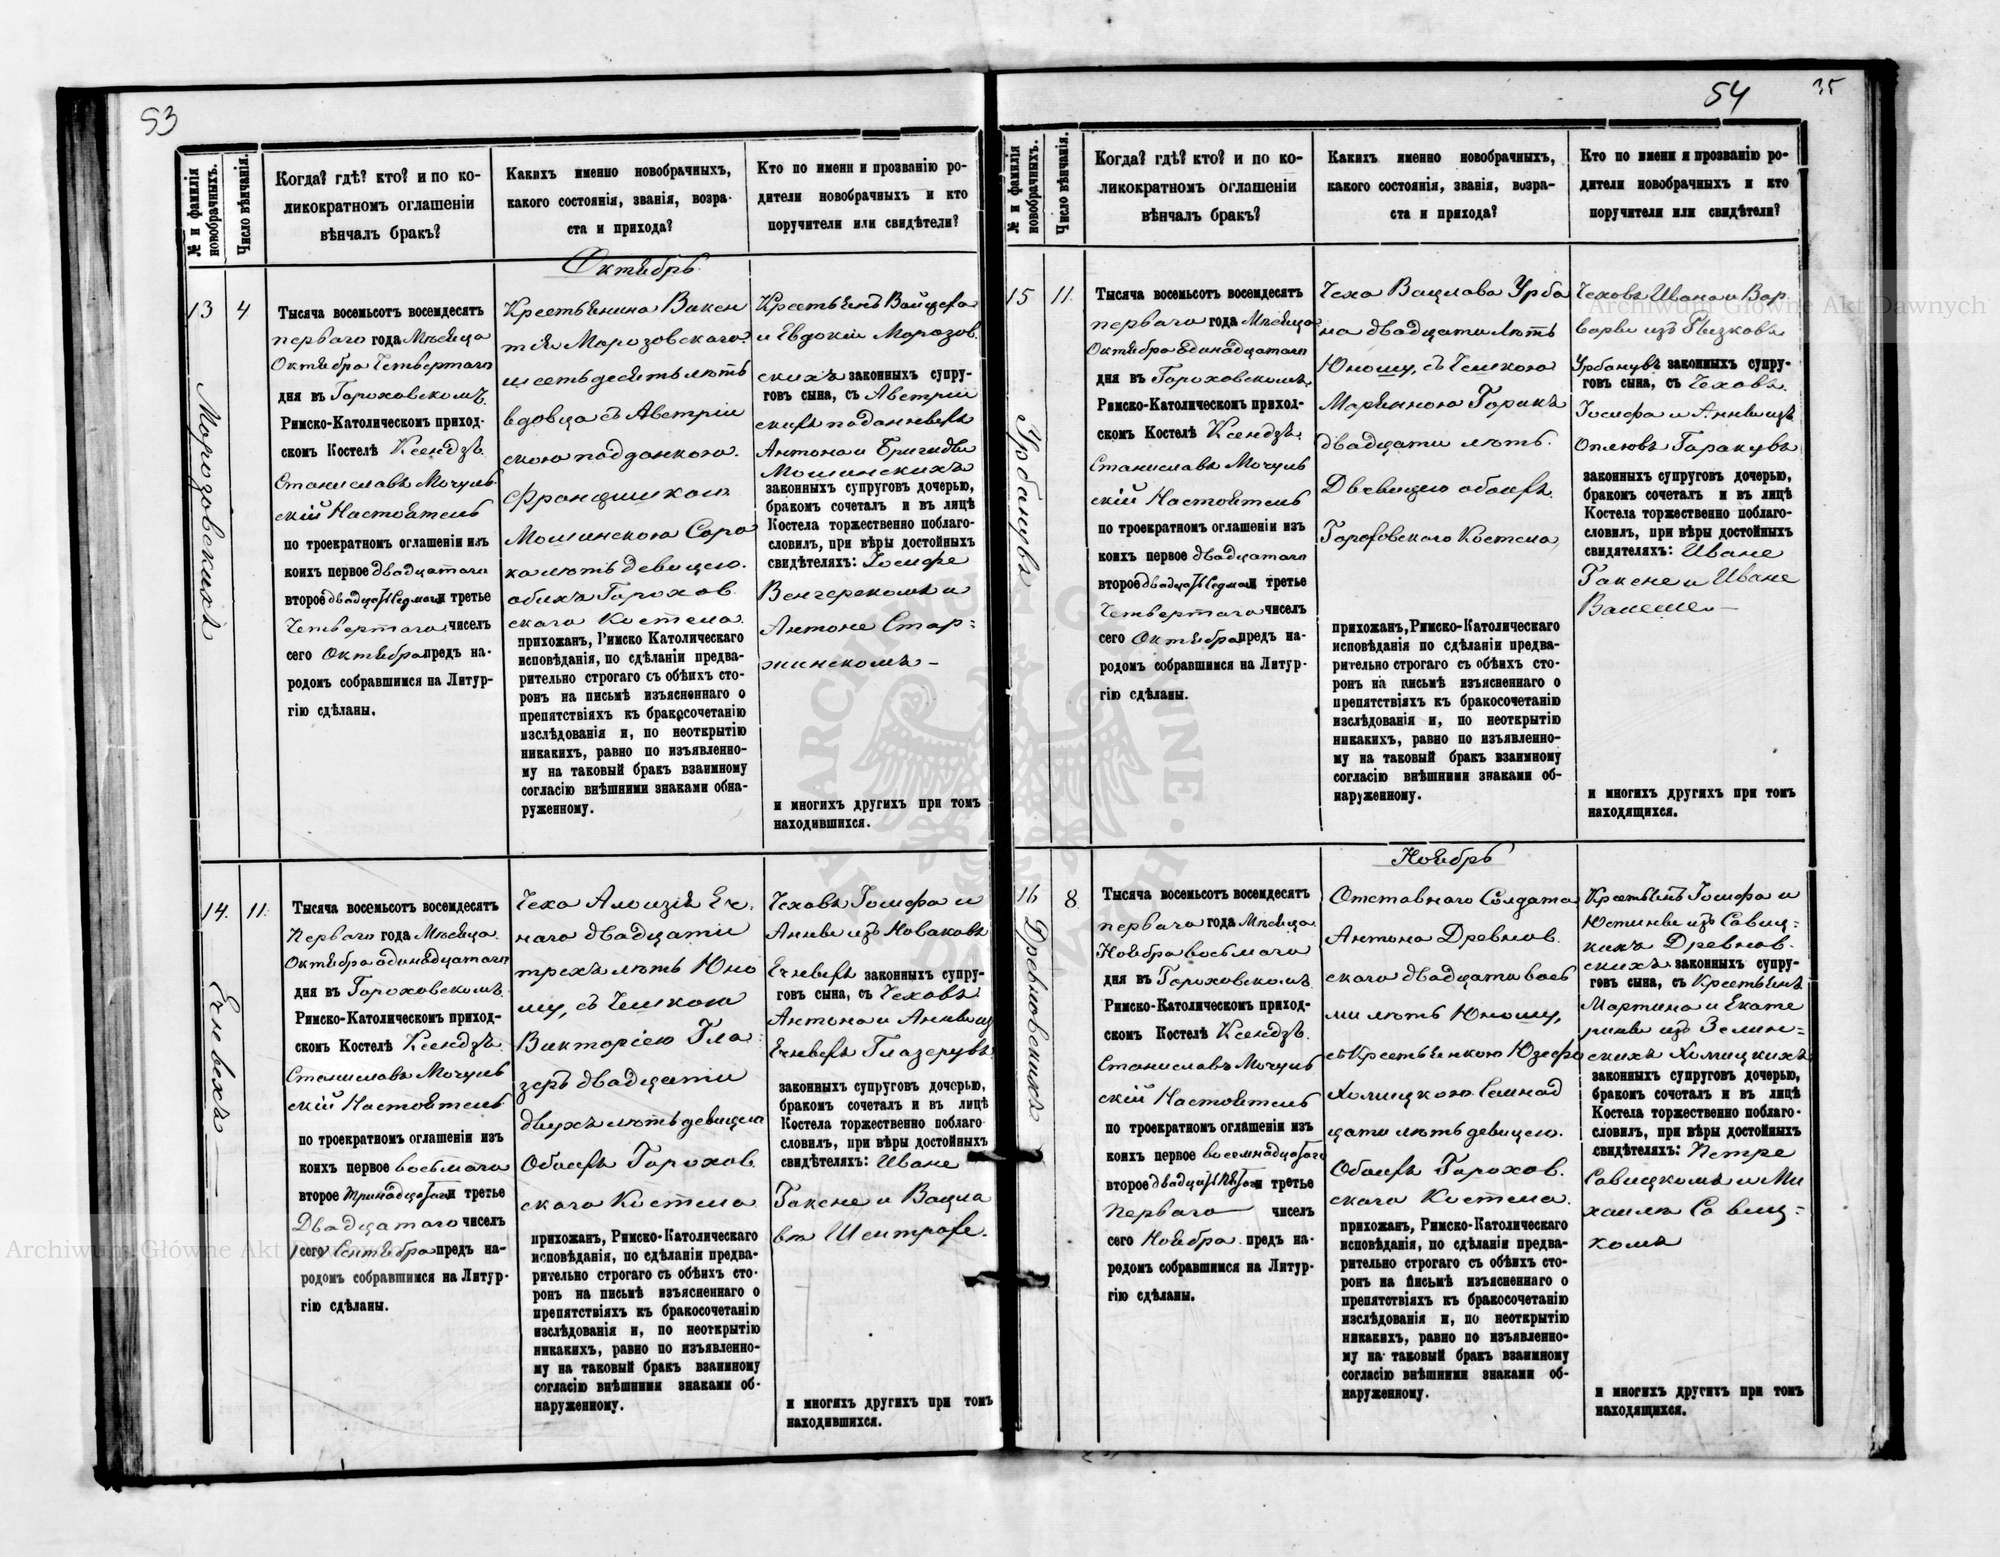 53
№ и фамилія новобрачныхъ.
Число вѣнчанія.
Когда? гдѣ? кто? и по ко-
ликократномъ оглашеніи
вѣнчалъ бракъ?
Какихъ именно новобрачныхъ,
какого состоянія, званія, возра-
ста и прихода?
Кто по имени и прозванію ро-
дители новобрачныхъ и кто
поручители или свидѣтели?
Октябрь
13
4
Морозовскихъ
Тысяча восемьсот восемдесятъ
перваго года Мѣсяца
Октября Четвертаго
дня въ Гороховскомъ
Римско-Католическомъ приход-
скомъ Костелѣ Ксендзъ
Станиславъ Мочуль
скій Настоятель
по троекратномъ оглашеніи изъ
коихъ первое двадцатаго
второе двадцать седмаго и третье
Четвертаго чиселъ
сего Октября предъ на-
родомъ собравшимся на Литур-
гію сдѣланы.
Крестьянина Викен
тія Морозовскаго
шестьдесятъ лѣтъ
вдовца съ Австрій
скою подданкою
Францишкою
Мошинскою Соро
ка лѣтъ девицею
обихъ Горохов
скаго Костела
прихожан, Римско Католическаго
исповѣданія, по сдѣланіи предва-
рительно строгаго съ обѣихъ сто-
ронъ на письмѣ изъясненнаго о
препятствіяхъ къ бракосочетанію
изслѣдованія и, по неоткрытію
никакихъ, равно по изъявленно-
му на таковый бракъ взаимному
согласію внѣшними знаками обна-
руженному.
Крестьянъ Войцеха
и Евдокіи Морозов
скихъ законныхъ супру-
говъ сына, съ Австрій
скихъ подданныхъ
Антона и Бригиды
Мошинскихъ
законныхъ супруговъ дочерью,
бракомъ сочеталъ и въ лицѣ
Костела торжественно поблаго-
словилъ, при вѣры достойныхъ
свидѣтеляхъ: Іосифе
Венгерскомъ и
Антоне Стар-
жинскомъ
и многихъ другихъ при томъ
находившихся.
14.
11.
Тысяча восемьсот восемдесятъ
Перваго года Мѣсяца
Октября одинадцатаго
дня въ Гороховскомъ
Римско-Католическомъ приход-
скомъ Костелѣ Ксендзъ
Станиславъ Мочуль
скій Настоятель
по троекратномъ оглашеніи изъ
коихъ первое восьмаго
второе тринадцатаго и третье
Двадцатаго чиселъ
сего Сентября предъ на-
родомъ собравшимся на Литур-
гію сдѣланы.
Чеха Алоизія
наго двадцати
трехъ лѣтъ Юно
шу, съ Чешкою
Викторіею Гла
зеръ двадцати
двухъ лѣтъ девицею
Обоихъ Горохов
скаго Костела
прихожанъ, Римско-Католическаго
исповѣданія, по сдѣланіи предва-
рительно строгаго съ обѣихъ сто-
ронъ на письмѣ изъясненнаго о
препятствіяхъ къ бракосочетанію
изслѣдованія и, по неоткрытію
никакихъ, равно по изъявленно-
му на таковый бракъ взаимному
согласію внѣшними знаками об-
наруженному.
Чеховъ Іосифа и
Анны изъ Новаковъ
законныхъ супру-
говъ сына, съ Чеховъ
Антона и Анны изъ
Глазеровъ
законныхъ супруговъ дочерью,
бракомъ сочеталъ и въ лицѣ
Костела торжественно поблаго-
словилъ, при вѣры достойныхъ
свидѣтеляхъ: Иване
Гаксне и Вацла
въ
и многихъ другихъ при томъ
находившихся.
54
35
№ и фамилія новобрачныхъ.
Число вѣнчанія.
Когда? гдѣ? кто? и по ко-
ликократномъ оглашеніи
вѣнчалъ бракъ?
Какихъ именно новобрачныхъ,
какого состоянія, званія, возра-
ста и прихода?
Кто по имени и прозванію ро-
дители новобрачныхъ и кто
поручители или свидѣтели?
15
11.
Урбанувъ
Тысяча восемьсот восемдесятъ
перваго года Мѣсяца
Октября одинадцатаго
дня въ Гороховскомъ
Римско-Католическомъ приход-
скомъ Костелѣ Ксендзъ
Станиславъ Мочуль
скій Настоятель
по троекратномъ оглашеніи изъ
коихъ первое двадцатаго
второе двадцать седмаго и третье
Четвертаго чиселъ
сего Октября предъ на-
родомъ собравшимся на Литур-
гію сдѣланы.
Чеха Вацлава Урба
на двадцати лѣтъ
Юношу, съ Чешкою
Маріянною Горакъ
двадцати лѣтъ
Дѣвицею обоихъ
Гороховскаго Костела
прихожанъ, Римско-Католическаго
исповѣданія по сдѣланіи предва-
рительно строгаго съ обѣихъ сто-
ронъ на письмѣ изъясненнаго о
препятствіяхъ къ бракосочетанію
изслѣдованія и, по неоткрытію
никакихъ, равно по изъявленно-
му на таковый бракъ взаимному
согласію внѣшними знаками об-
наруженному.
Чеховъ Ивана и Вар
вары изъ
Урбанувъ законныхъ супру-
говъ сына, съ Чеховъ
Іосифа и Анны изъ
Горакувъ
законныхъ супруговъ дочерью,
бракомъ сочеталъ и въ лицѣ
Костела торжественно поблаго-
словилъ, при вѣры достойныхъ
свидятеляхъ: Иване
Гаксне и Иване
и многихъ другихъ при томъ
находящихся.
Ноябрь
16
8
Древновскихъ
Тысяча восемьсот восемдесятъ
перваго года Мѣсяца
Ноября восьмаго
дня въ Гороховскомъ
Римско-Католическомъ приход-
скомъ Костелѣ Ксендзъ
Станиславъ Мочуль
скій Настоятель
по троекратномъ оглашеніи изъ
коихъ первое
второе двадцать пятаго и третье
Перваго чиселъ
сего Ноября предъ на-
родомъ собравшимся на Литур-
гію сдѣланы.
Отставнаго Солдата
Антона Древнов
скаго двадцати вось
ми лѣтъ Юношу,
съ Крестьянкою Юзефо
Хомицкою Семнад
цати лѣтъ девицею
Обоихъ Горохов
скаго Костела
прихожанъ, Римско-Католическаго
исповѣданія, по сдѣланіи предва-
рительно строгаго съ обѣихъ сто-
ронъ на письмѣ изъясненнаго о
препятствіяхъ къ бракосочетанію
изслѣдованія и, по неоткрытію
никакихъ, равно по изъявленно-
му на таковый бракъ взаимному
согласію внѣшними знаками об-
наруженному.
Крестьянъ Іосифа и
Юстины изъ Савиц-
кихъ Древнов
скихъ законныхъ супру-
говъ сына, съ Крестьянъ
Мартина и Екате
рины изъ Зелин-
скихъ Хомицкихъ
законныхъ супруговъ дочерью,
бракомъ сочеталъ и въ лицѣ
Костела торжественно поблаго-
словилъ, при вѣры достойныхъ
свидѣтеляхъ: Петре
Савицкомъ и Ми
хаилѣ Савиц-
комъ
и многихъ другихъ при томъ
находящихся.
Archiwum Główne Akt Dawnych
Archiwum Główne Akt Dawnych